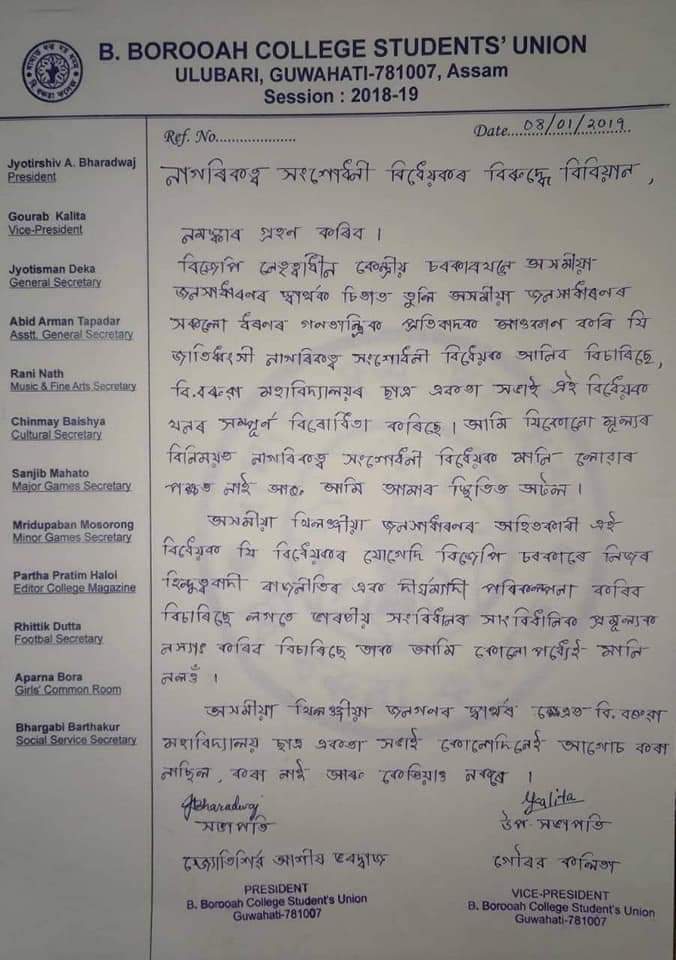 B. BOROOAH COLLEGE STUDENTS' UNION
ULUBARI, GUWAHATI-781007, Assam
Session : 2018-19
Ref. No....................
Date....08/01/2019....
Jyotirshiv A. Bharadwaj
President
Gourab Kalita
Vice-President
Jyotisman Deka
General Secretary
Abid Arman Tapadar
Asstt. General Secretary
Rani Nath
Music & Fine Arts Secretary
Chinmay Baishya
Cultural Secretary
Sanjib Mahato
Major Games Secretary
Mridupaban Mosorong
Minor Games Secretary
Partha Pratim Haloi
Editor College Magazine
Rhittik Dutta
Football Secretary
Aparna Bora
Girls' Common Room
Bhargabi Barthakur
Social Service Secretary
নাগৰিকত্ব সংশোধনী বিধেয়কৰ বিৰুদ্ধে বিবিয়ান,
নমস্কাৰ গ্ৰহণ কৰিব ।
বিজেপি নেতৃত্বাধীন কেন্দ্ৰীয় চৰকাৰখনে অসমীয়া
জনসাধাৰণৰ স্বাৰ্থক চিতাত তুলি অসমীয়া জনসাধাৰণৰ
সকলো ধৰণৰ গণতান্ত্ৰিক প্ৰতিবাদক আওকাণ কৰি যি
জাতিধ্বংসী নাগৰিকত্ব সংশোধনী বিধেয়ক আনিব বিচাৰিছে,
বি.বৰুৱা মহাবিদ্যালয়ৰ ছাত্ৰ একতা সভাই এই বিধেয়ক
খনৰ সম্পূৰ্ণ বিৰোধিতা কৰিছে । আমি যিকোনো মূল্যৰ
বিনিময়ত নাগৰিকত্ব সংশোধনী বিধেয়ক মানি লোৱাৰ
পক্ষত নাই আৰু আমি আমাৰ স্থিতিত অটল ।
অসমীয়া খিলঞ্জীয়া জনসাধাৰণৰ অহিতকাৰী এই
বিধেয়ক যি বিধেয়কৰ যোগেদি বিজেপি চৰকাৰে নিজৰ
হিন্দুত্ববাদী ৰাজনীতিৰ এক দীৰ্ঘম্যাদী পৰিকল্পনা কৰিব
বিচাৰিছে লগতে ভাৰতীয় সংবিধানৰ সাংবিধানিক মূল্যক
নস্যাৎ কৰিব বিচাৰিছে তাক আমি কোনোপধ্যেই মানি
নলওঁ ।
অসমীয়া খিলঞ্জীয়া জনগণৰ স্বাৰ্থৰ ক্ষেত্ৰত বি. বৰুৱা
মহাবিদ্যালয় ছাত্ৰ একতা সভাই কোনোদিনেই আপোচ কৰা
নাছিল, কৰা নাই আৰু কেতিয়াও নকৰে ।
সভাপতি
উপ-সভাপতি
জ্যোতিৰ্শিৱ আশীষ ভৰদ্বাজ
গৌৰৱ কলিতা
PRESIDENT
B. Borooah College Student's Union
Guwahati-781007
VICE-PRESIDENT
B. Borooah College Student's Union
Guwahati-781007